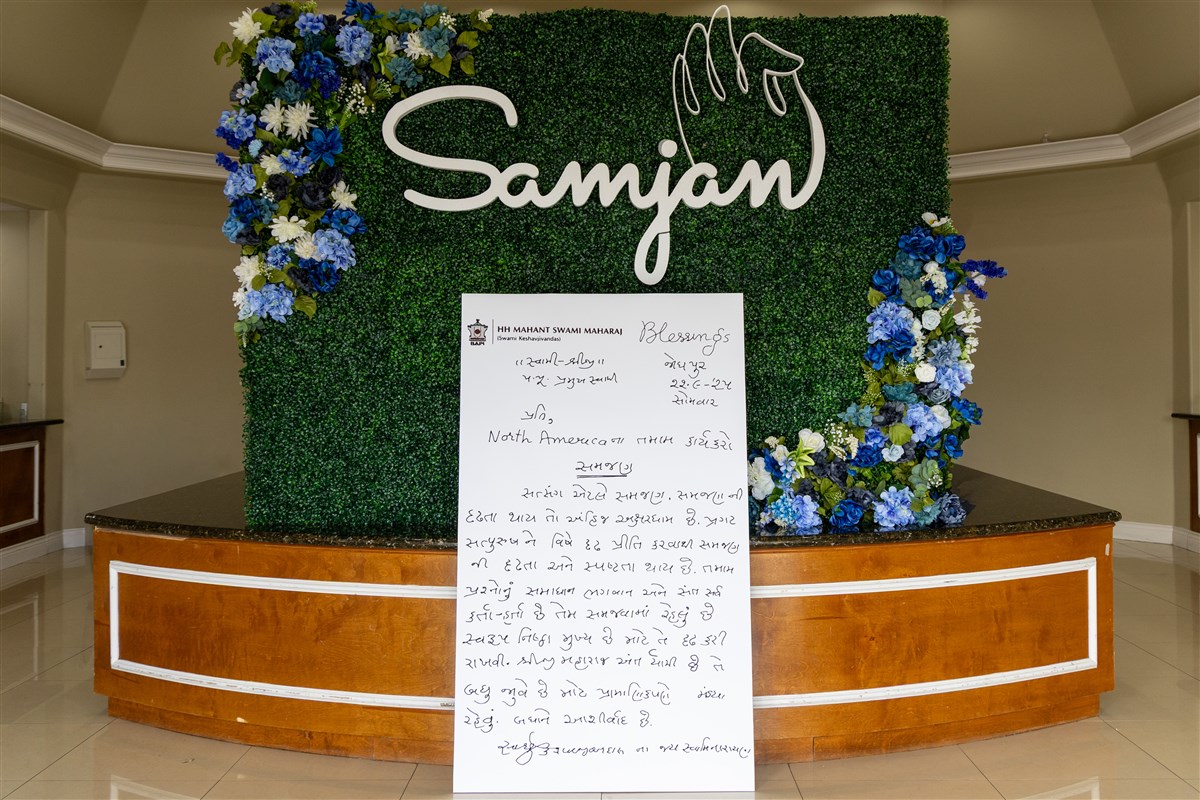 Samjan
BAPS
HH MAHANT SWAMI MAHARAJ
(Swami Keshavjivandas)
Blessings
॥ સ્વામી-શ્રીજી ॥
પ.પૂ. પ્રમુખ સ્વામી
જોધપુર
૨૨-૯-'૨૫
સોમવાર
પ્રતિ,
North America ના તમામ કાર્યકરો
સમજણ
સત્સંગ એટલે સમજણ. સમજણની
દૃઢતા થાય તો અહિંજ અક્ષરધામ છે. પ્રગટ
સત્પુરુષને વિષે દૃઢ પ્રીતિ કરવાથી સમજણ
ની દૃઢતા અને સ્પષ્ટતા થાય છે. તમામ
પ્રશ્નોનું સમાધાન ભગવાન અને સંત સર્વ
કર્તા-હર્તા છે તેમ સમજવામાં રહેલું છે
સ્વરૂપ નિષ્ઠા મુખ્ય છે માટે તે દૃઢ કરી
રાખવી. શ્રીજી મહારાજ અંતર્યામી છે તે
બધુ જુવે છે માટે પ્રામાણિકપણે મંડ્યા
રહેવું. બધાને આશીર્વાદ છે.
ના જય સ્વામિનારાયણ